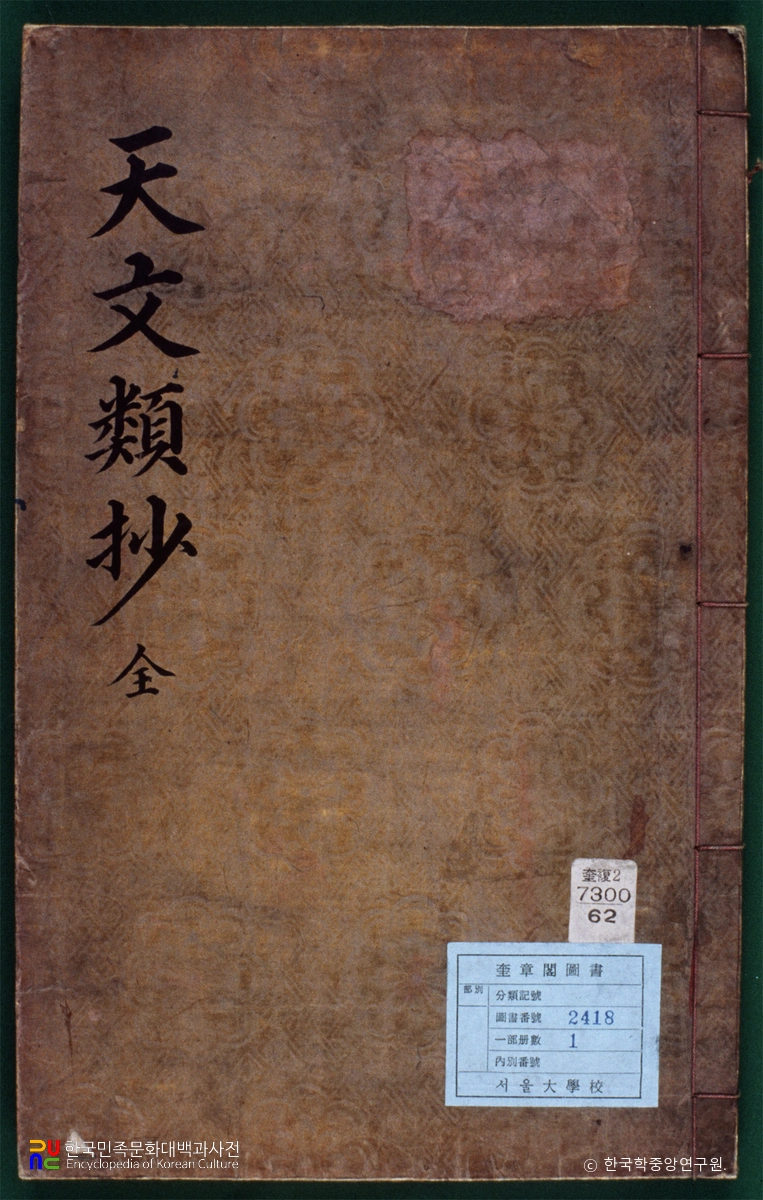 天文類抄 全
奎復2
7300
62
奎章閣圖書
部別
分類記號
圖書番號 2418
一部册數 1
內別番號
서울大學校
한국민족문화대백과사전
Encyclopedia of Korean Culture
© 한국학중앙연구원